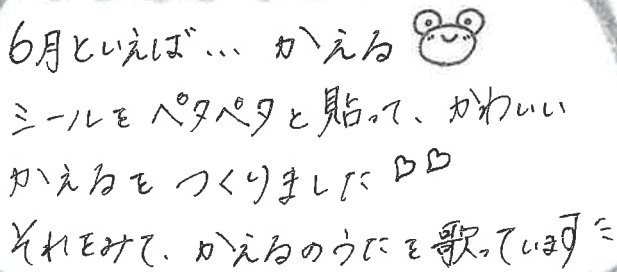 6月といえば… かえる
シールをペタペタと貼って、かわいい
かえるを つくりました♡♡
それをみて、かえるのうたを歌っています